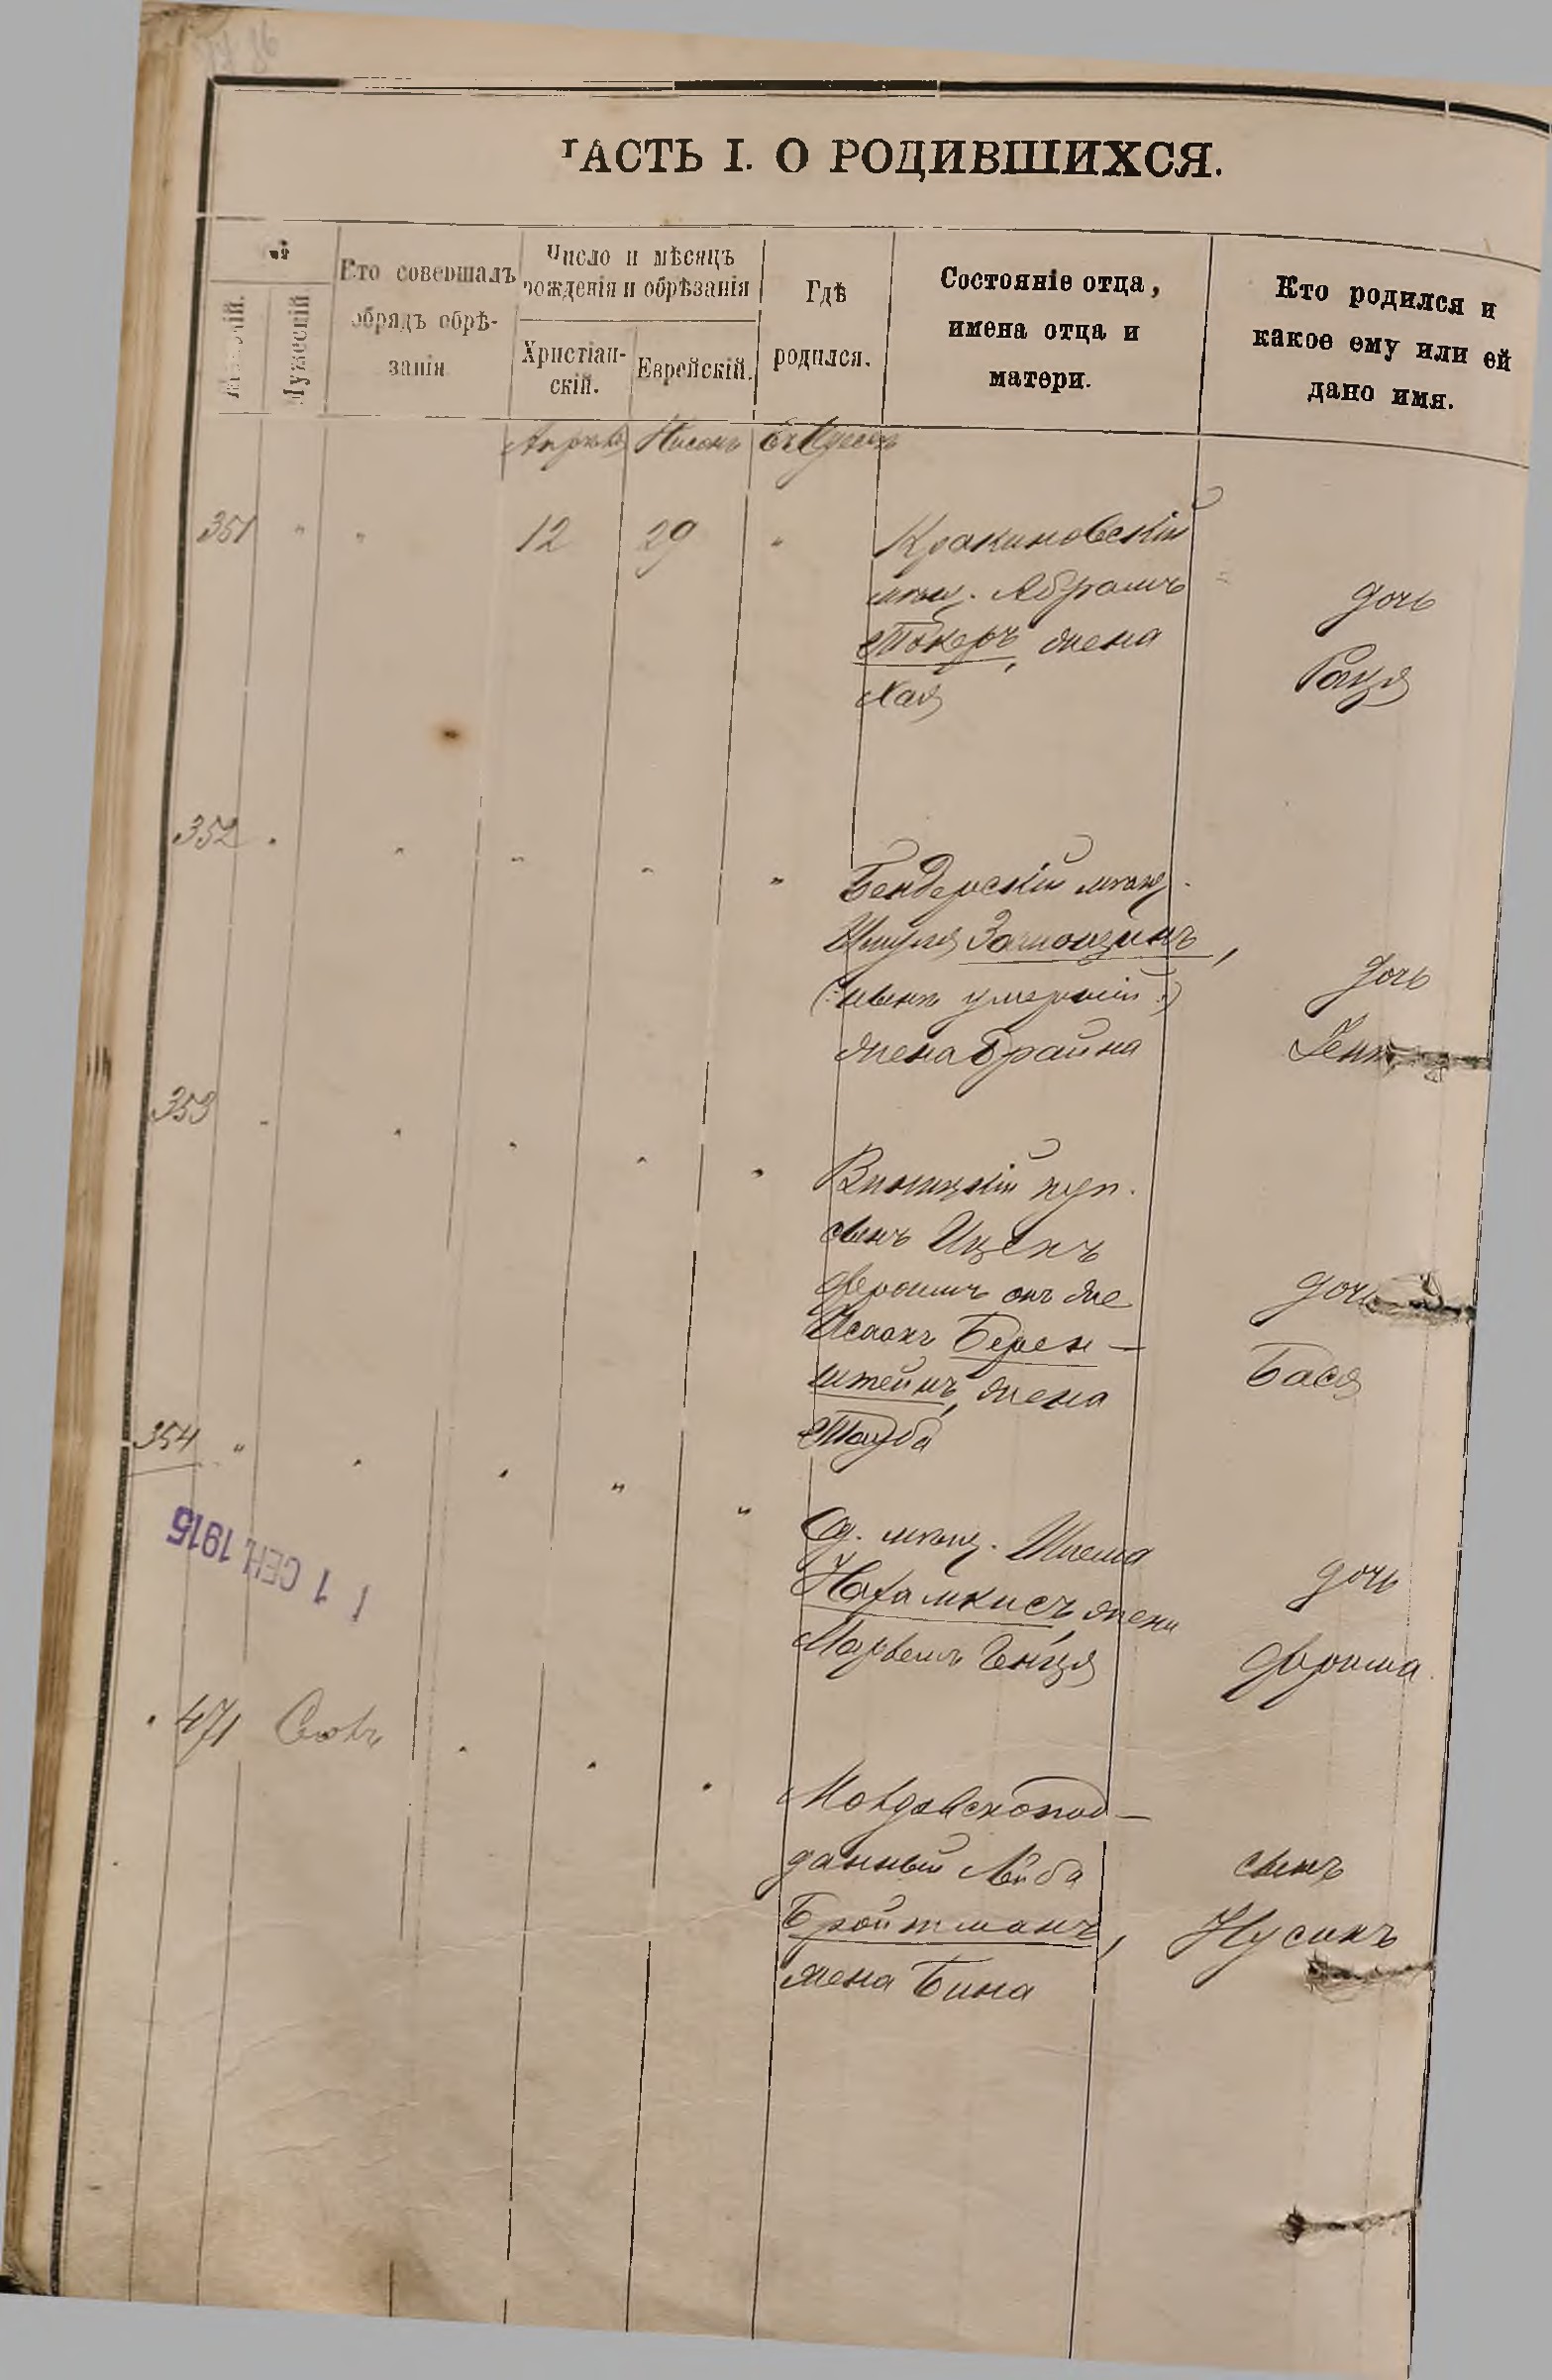 ЧАСТЬ I. О РОДИВШИХСЯ.
№
Женскій.
Мужескій
Кто совершалъ
обрядъ обрѣ-
занія
Число и мѣсяцъ
рожденія и обрѣзанія
Христіан-
скій.
Еврейскій.
Гдѣ
родился.
Состояніе отца,
имена отца и
матери.
Кто родился и
какое ему или ей
дано имя.
Апрѣль Нисонъ въ Одессѣ
351 " " 12 29 "
Кракиновскій
мѣщ. Абрамъ
Токеръ, жена
Хая
дочь
Рауля
352
Бендерскій мѣщ.
Шмуля
(: нынѣ умершій :)
жена Брайна
дочь
Гент
353
Виницкій куп.
сынъ Ицекъ
Фроимъ онъ же
Исаакъ Берен-
штейнъ, жена
Тауба
дочь
Бася
354
Од. мѣщ. Шлема
Нахамкисъ, жена
Генця
дочь
Фрима
1 СЕН. 1915
471
Молдавскопод-
данный Лейба
Бройтманъ,
жена Бина
сынъ
Нусинъ